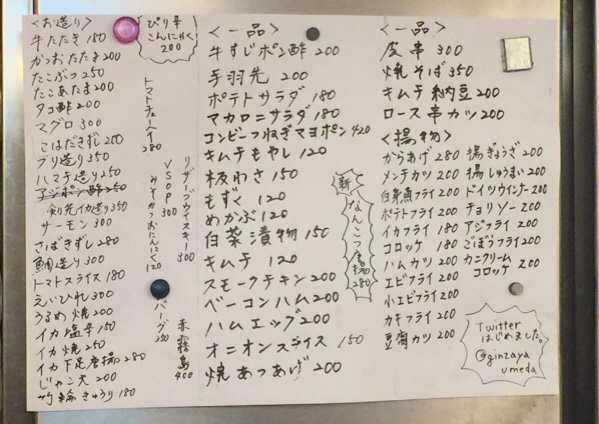 ＜お造り＞
牛たたき 180
かつおたたき 200
たこぶつ 250
たこあたま 200
タコ酢 200
マグロ 300
こはだきずし 200
ブリ造り 350
ハマチ造り 250
アジポン酢 250
剣先イカ造り 350
サーモン 300
さばきずし 280
鯛造り 300
トマトスライス 180
えいひれ 300
うるめ焼 200
イカ塩辛 150
イカ焼 250
イカ下足唐揚 280
じゃこ天 200
竹輪きゅうり 180
ぴり辛
こんにゃく
200
トマトチューハイ
280
リザーブウイスキー
300
VSOP 300
みそかつおにんにく 120
バーグ
赤霧島
400
＜一品＞
牛すじポン酢 200
手羽先 200
ポテトサラダ 180
マカロニサラダ 180
コンビーフねぎマヨポン 420
キムチもやし 120
板わさ 150
もずく 120
めかぶ 120
白菜漬物 150
キムチ 120
スモークチキン 200
ベーコンハム 200
ハムエッグ 200
オニオンスライス 150
焼あつあげ 200
新
なんこつ唐揚
280
＜一品＞
皮串 300
焼そば 350
キムチ納豆 200
ロース串カツ 200
＜揚物＞
からあげ 280
メンチカツ 200
白菜魚フライ 200
ポテトフライ 200
イカフライ 180
コロッケ 180
ハムカツ 200
エビフライ 200
小エビフライ 200
カキフライ 200
豆腐カツ 200
揚ぎょうざ 200
揚しゅうまい 200
ドイツウインナー 200
チョリソー 200
アジフライ 200
ごぼうフライ 200
カニクリーム
コロッケ 200
Twitter
はじめました。
@ginzaya
umeda